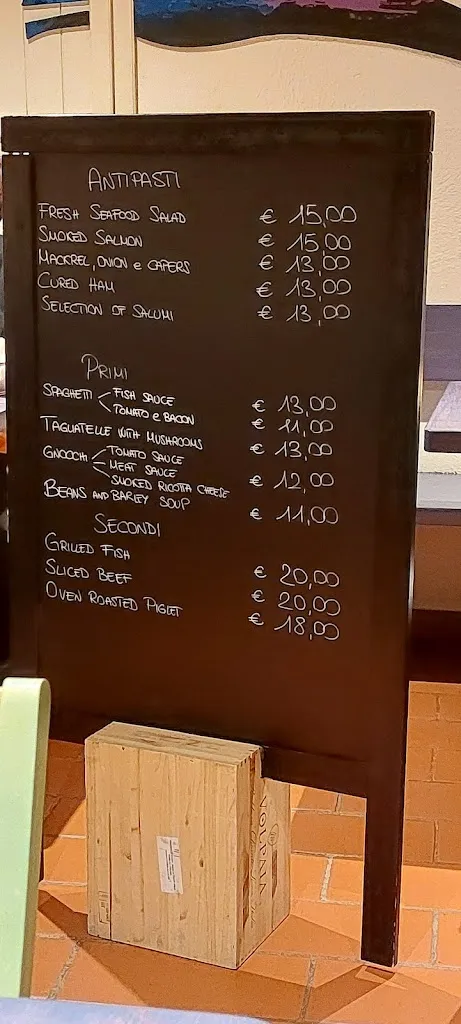 ANTIPASTI
FRESH SEAFOOD SALAD € 15,00
SMOKED SALMON € 15,00
MACKREL, ONION e CAPERS € 13,00
CURED HAM € 13,00
SELECTION OF SALUMI € 13,00
PRIMI
SPAGHETTI FISH SAUCE € 13,00
TOMATO e BACON € 11,00
TAGLIATELLE WITH MUSHROOMS € 13,00
GNOCCHI TOMATO SAUCE
MEAT SAUCE € 12,00
SMOKED RICOTTA CHEESE
BEANS AND BARLEY SOUP € 11,00
SECONDI
GRILLED FISH € 20,00
SLICED BEEF € 20,00
OVEN ROASTED PIGLET € 18,00
VOLPAIA